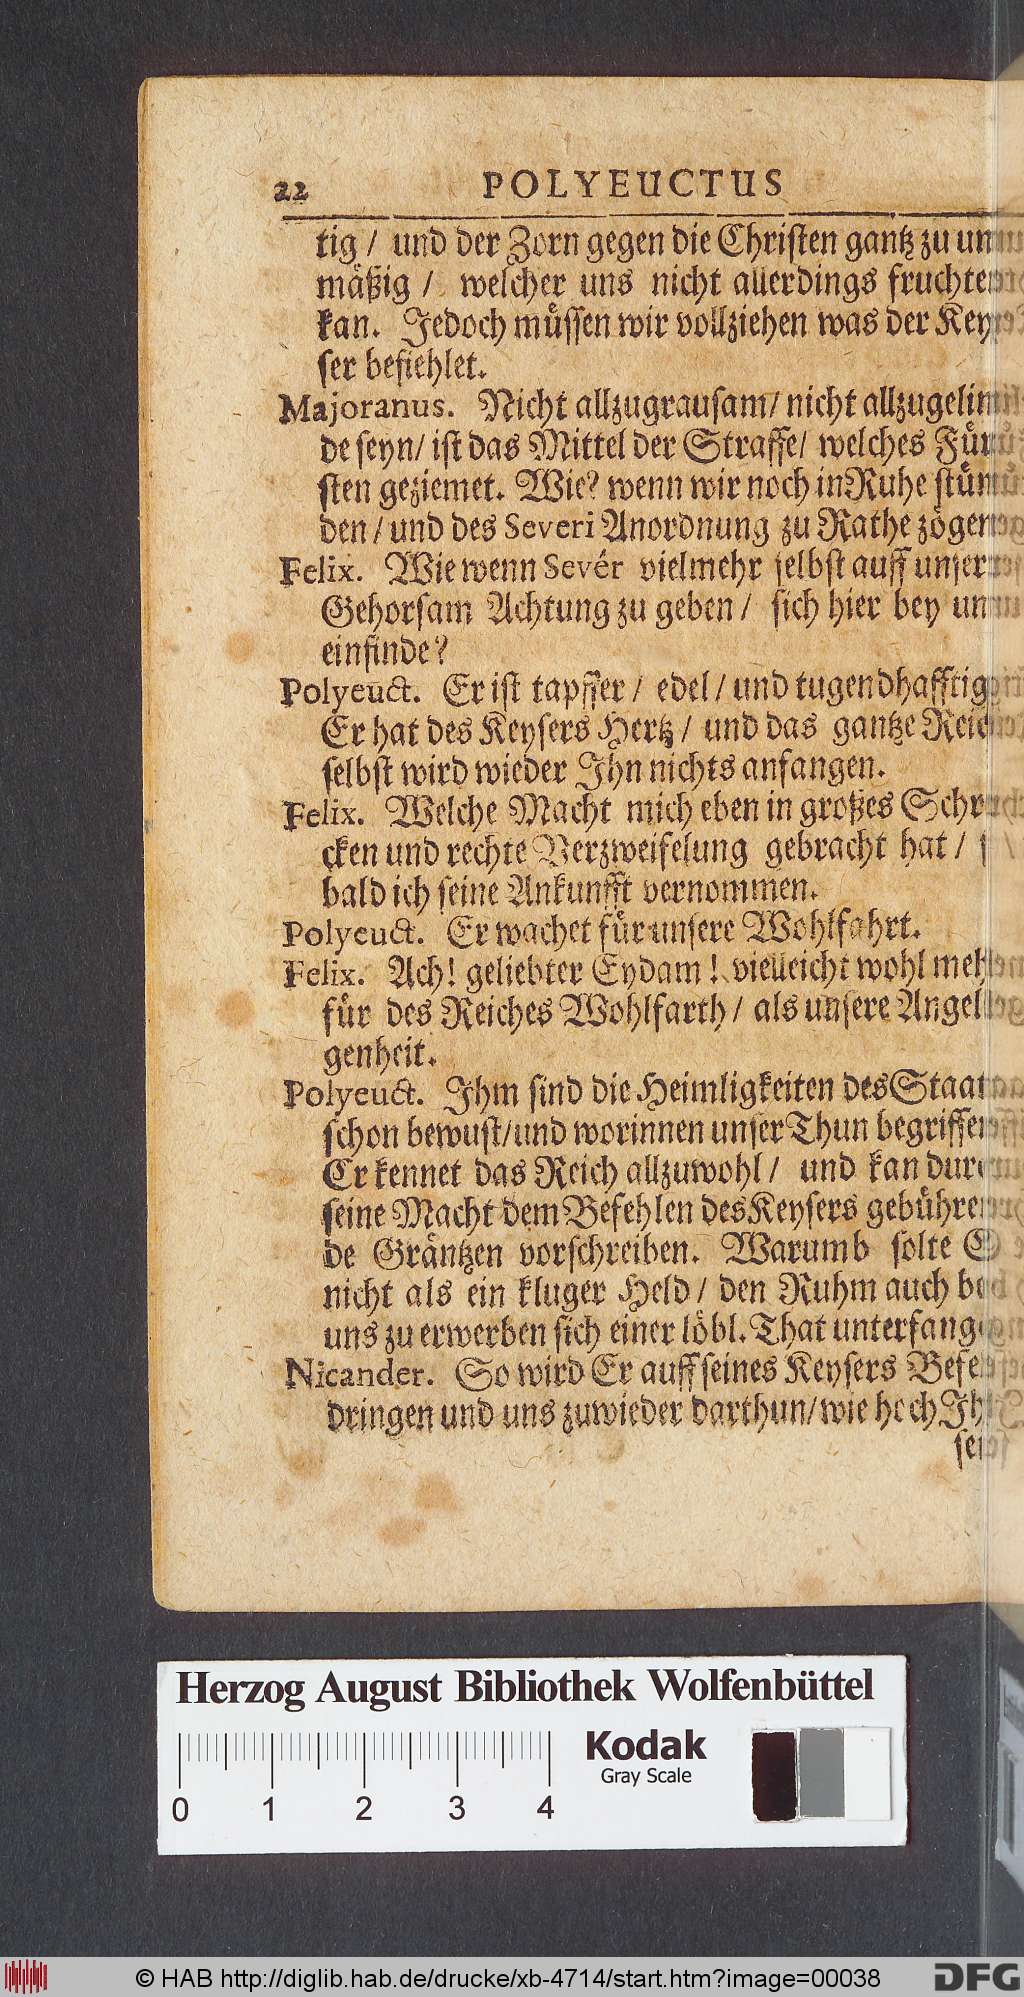 22 POLYEUCTUS
tig / und der Zorn gegen die Christen gantz zu un
mäßig / welcher uns nicht allerdings fruchten
kan. Jedoch müssen wir vollziehen was der Key
ser befiehlet.
Majoranus. Nicht allzugrausam/ nicht allzugelin
de seyn/ ist das Mittel der Straffe/ welches Für
sten geziemet. Wie? wenn wir noch in Ruhe stün
den / und des Severi Anordnung zu Rathe zögen
Felix. Wie wenn Sevér vielmehr selbst auff unser
Gehorsam Achtung zu geben / sich hier bey un
einfinde?
Polyeuct. Er ist tapffer / edel / und tugendhafftig
Er hat des Keysers Hertz / und das gantze Reich
selbst wird wieder Ihn nichts anfangen.
Felix. Welche Macht mich eben in großes Schr
cken und rechte Verzweifelung gebracht hat / s
bald ich seine Ankunfft vernommen.
Polyeuct. Er wachet für unsere Wohlfahrt.
Felix. Ach! geliebter Eydam! vielleicht wohl meh
für des Reiches Wohlfarth / als unsere Angel
genheit.
Polyeuct. Ihm sind die Heimligkeiten des Staat
schon bewust/und worinnen unser Thun begriffen
Er kennet das Reich allzuwohl / und kan durc
seine Macht dem Befehlen des Keysers gebühren
de Gräntzen vorschreiben. Warumb solte E
nicht als ein kluger Held / den Ruhm auch be
uns zu erwerben sich einer löbl. That unterfang
Nicander. So wird Er auff seines Keysers Befe
dringen und uns zuwieder darthun/wie hoch Ih
sei
Herzog August Bibliothek Wolfenbüttel
Kodak
Gray Scale
0 1 2 3 4
© HAB http://diglib.hab.de/drucke/xb-4714/start.htm?image=00038
DFG